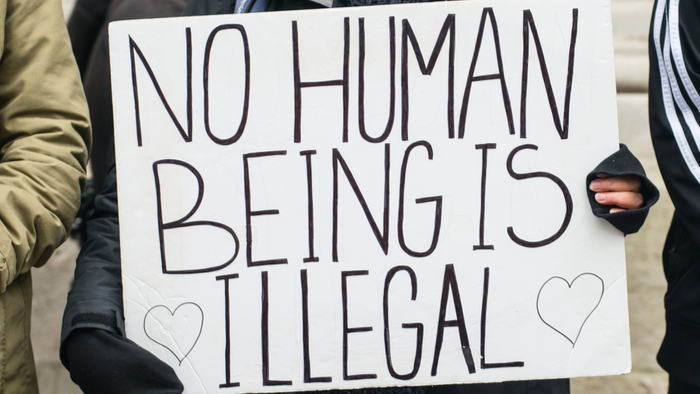 NO HUMAN
BEING IS
ILLEGAL